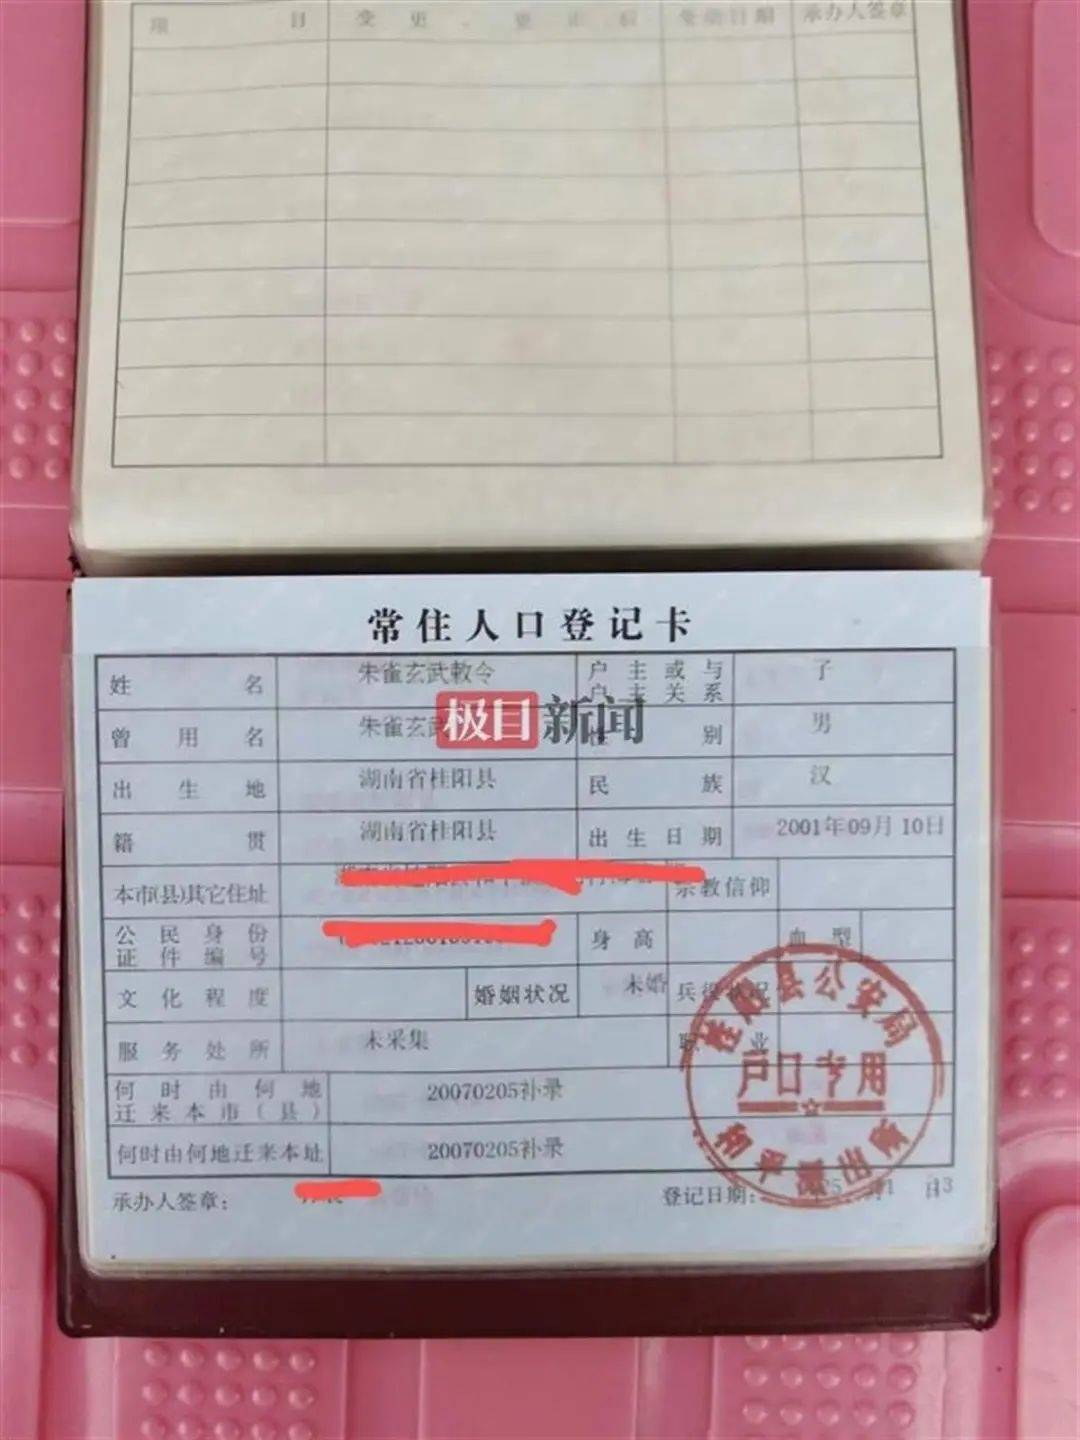 项 目 变 更 、 更 正 后 变动日期 承办人签章
常住人口登记卡
姓 名 朱雀玄武敕令 户主或与户主关系 子
曾 用 名 朱雀玄武 性 别 男
极目新闻
出 生 地 湖南省桂阳县 民 族 汉
籍 贯 湖南省桂阳县 出生日期 2001年09月10日
本市(县)其它住址 宗教信仰
公民身份证件编号 身 高 血 型
文化程度 婚姻状况 未婚 兵役状况
服务处所 未采集 职 业
何时由何地迁来本市(县) 20070205补录
何时由何地迁来本址 20070205补录
承办人签章: 登记日期: 月 日
桂阳县公安局
户口专用